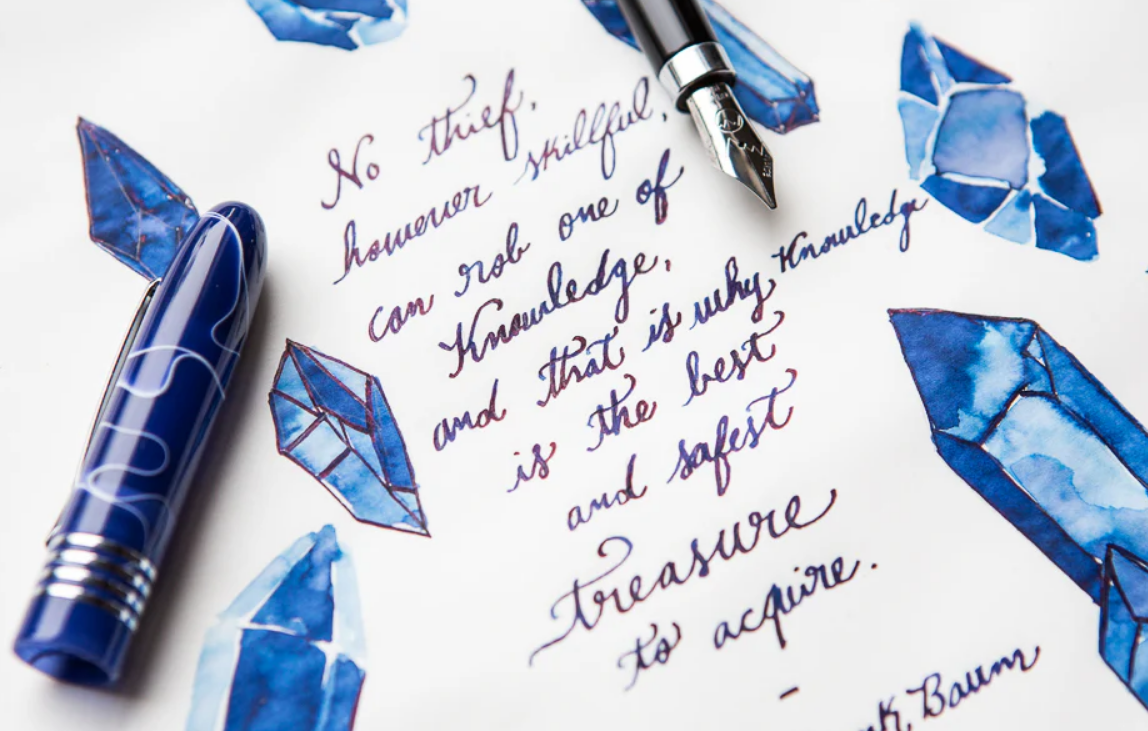 No thief,
however skillful,
can rob one of
Knowledge,
and that is why Knowledge
is the best
and safest
treasure
to acquire.
-
Baum